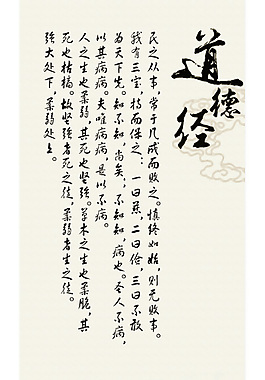 道德经
民之从事，常于几成而败之。慎终如始，则无败事。
我有三宝，持而保之：一曰慈，二曰俭，三曰不敢
为天下先。知不知，尚矣；不知知，病也。圣人不病，
以其病病。夫唯病病，是以不病。
人之生也柔弱，其死也坚强。草木之生也柔脆，其
死也枯槁。故坚强者死之徒，柔弱者生之徒。
强大处下，柔弱处上。